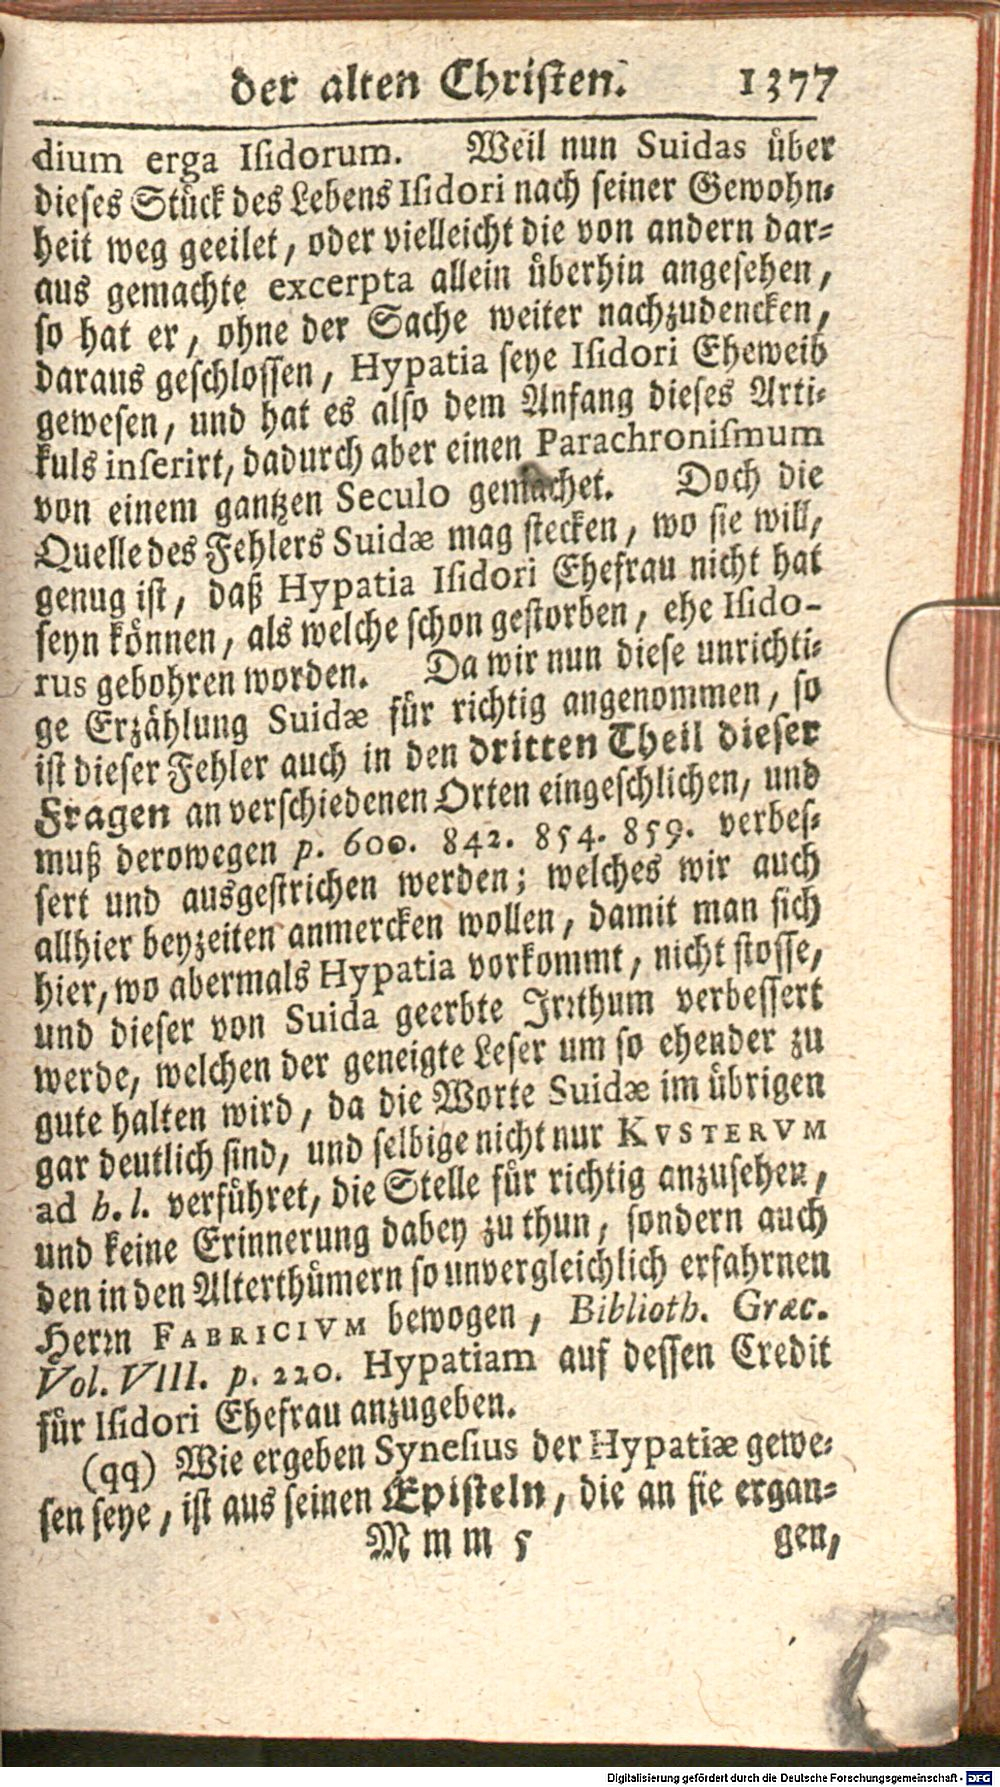 der alten Christen. 1377
dium erga Isidorum. Weil nun Suidas über
dieses Stück des Lebens Isidori nach seiner Gewohn-
heit weg geeilet, oder vielleicht die von andern dar-
aus gemachte excerpta allein überhin angesehen,
so hat er, ohne der Sache weiter nachzudencken,
daraus geschlossen, Hypatia seye Isidori Eheweib
gewesen, und hat es also dem Anfang dieses Arti-
kuls inserirt, dadurch aber einen Parachronismum
von einem gantzen Seculo gemachet. Doch die
Quelle des Fehlers Suidæ mag stecken, wo sie will,
genug ist, daß Hypatia Isidori Ehefrau nicht hat
seyn können, als welche schon gestorben, ehe Isido-
rus gebohren worden. Da wir nun diese unrichti-
ge Erzählung Suidæ für richtig angenommen, so
ist dieser Fehler auch in den dritten Theil dieser
Fragen an verschiedenen Orten eingeschlichen, und
muß derowegen p. 600. 842. 854. 859. verbes-
sert und ausgestrichen werden; welches wir auch
allhier beyzeiten anmercken wollen, damit man sich
hier, wo abermals Hypatia vorkommt, nicht stosse,
und dieser von Suida geerbte Irrthum verbessert
werde, welchen der geneigte Leser um so ehender zu
gute halten wird, da die Worte Suidæ im übrigen
gar deutlich sind, und selbige nicht nur KVSTERVM
ad h. l. verführet, die Stelle für richtig anzusehen,
und keine Erinnerung dabey zu thun, sondern auch
den in den Alterthümern so unvergleichlich erfahrnen
Herrn FABRICIVM bewogen, Biblioth. Græc.
Vol. VIII. p. 220. Hypatiam auf dessen Credit
für Isidori Ehefrau anzugeben.
(qq) Wie ergeben Synesius der Hypatiæ gewe-
sen seye, ist aus seinen Episteln, die an sie ergan-
Mmm 5 gen,
Digitalisierung gefördert durch die Deutsche Forschungsgemeinschaft - DFG